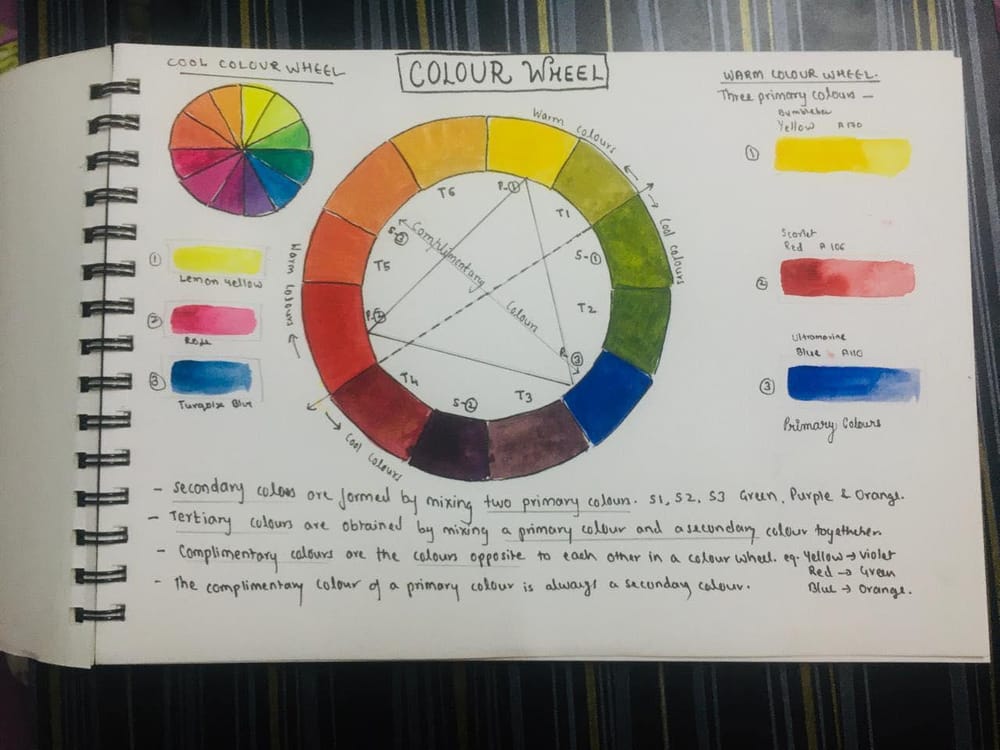 COOL COLOUR WHEEL
COLOUR WHEEL
WARM COLOUR WHEEL.
Three primary colours —
Yellow A170
①
Scarlet
Red A 106
②
Ultramarine
Blue A110
③
Primary Colours
①
Lemon Yellow
②
Rose
③
Turqoix Blue
Warm colours
Cool colours
Warm colours
Cool colours
T6
P-①
T1
S-①
T2
P-③
T3
S-②
T4
P-②
T5
S-③
Complimentary Colours
- Secondary colors are formed by mixing two primary colours. S1, S2, S3 Green, Purple & Orange.
- Tertiary colours are obtained by mixing a primary colour and a secondary colour
- Complimentary colours are the colours opposite to each other in a colour wheel. eg. Yellow → Violet
Red → Green
Blue → Orange.
- The complimentary colour of a primary colour is always a seconday colour.